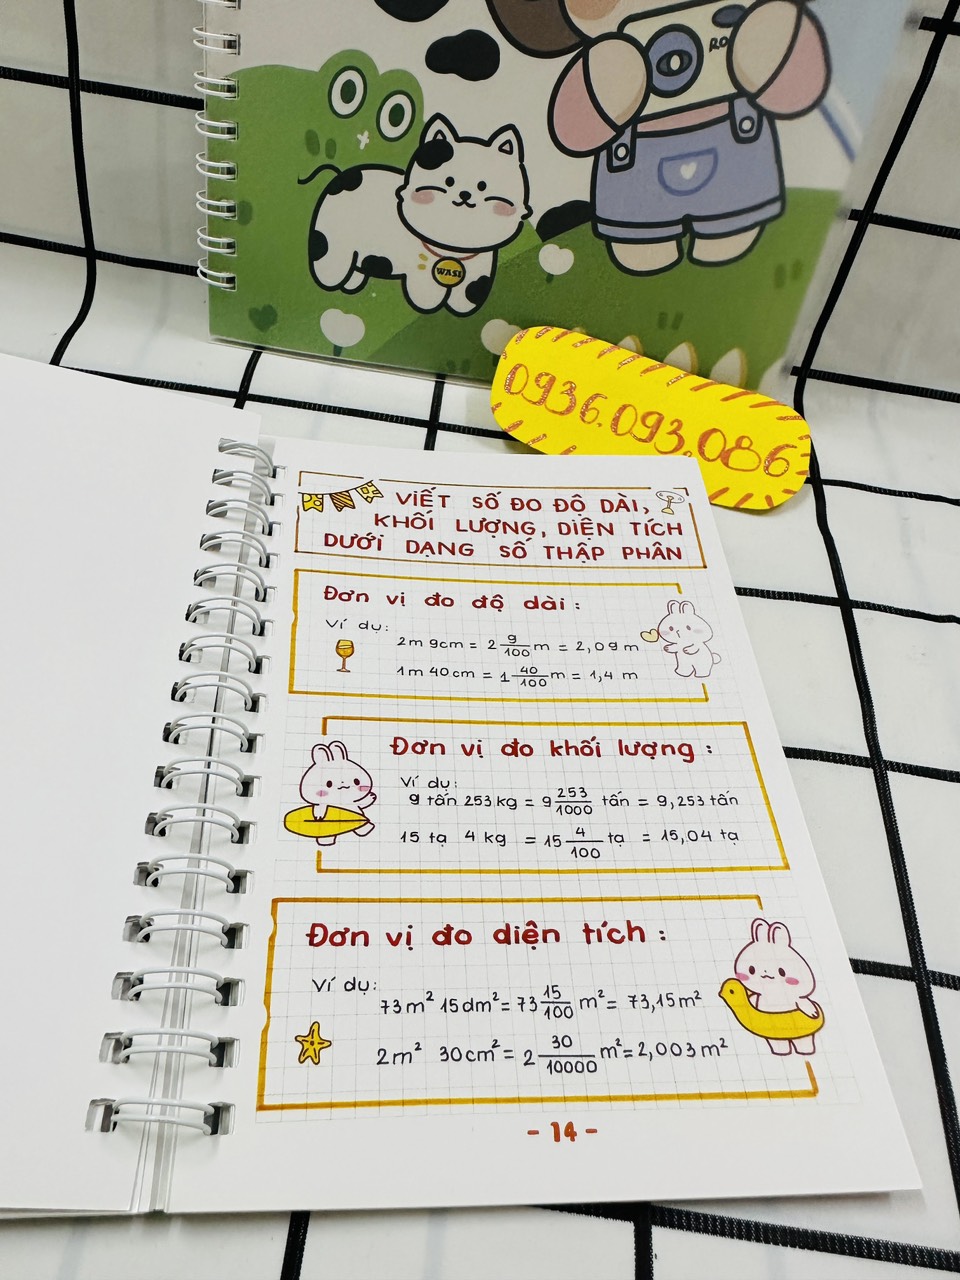 RO
WASI
0936.093.086
VIẾT SỐ ĐO ĐỘ DÀI,
KHỐI LƯỢNG, DIỆN TÍCH
DƯỚI DẠNG SỐ THẬP PHÂN
Đơn vị đo độ dài :
Ví dụ:
2m 9cm = 2 9/100 m = 2,09 m
1m 40cm = 1 40/100 m = 1,4 m
Đơn vị đo khối lượng :
Ví dụ:
9 tấn 253 kg = 9 253/1000 tấn = 9,253 tấn
15 tạ 4 kg = 15 4/100 tạ = 15,04 tạ
Đơn vị đo diện tích :
Ví dụ:
73m² 15dm² = 73 15/100 m² = 73,15m²
2m² 30cm² = 2 30/10000 m² = 2,003 m²
- 14 -